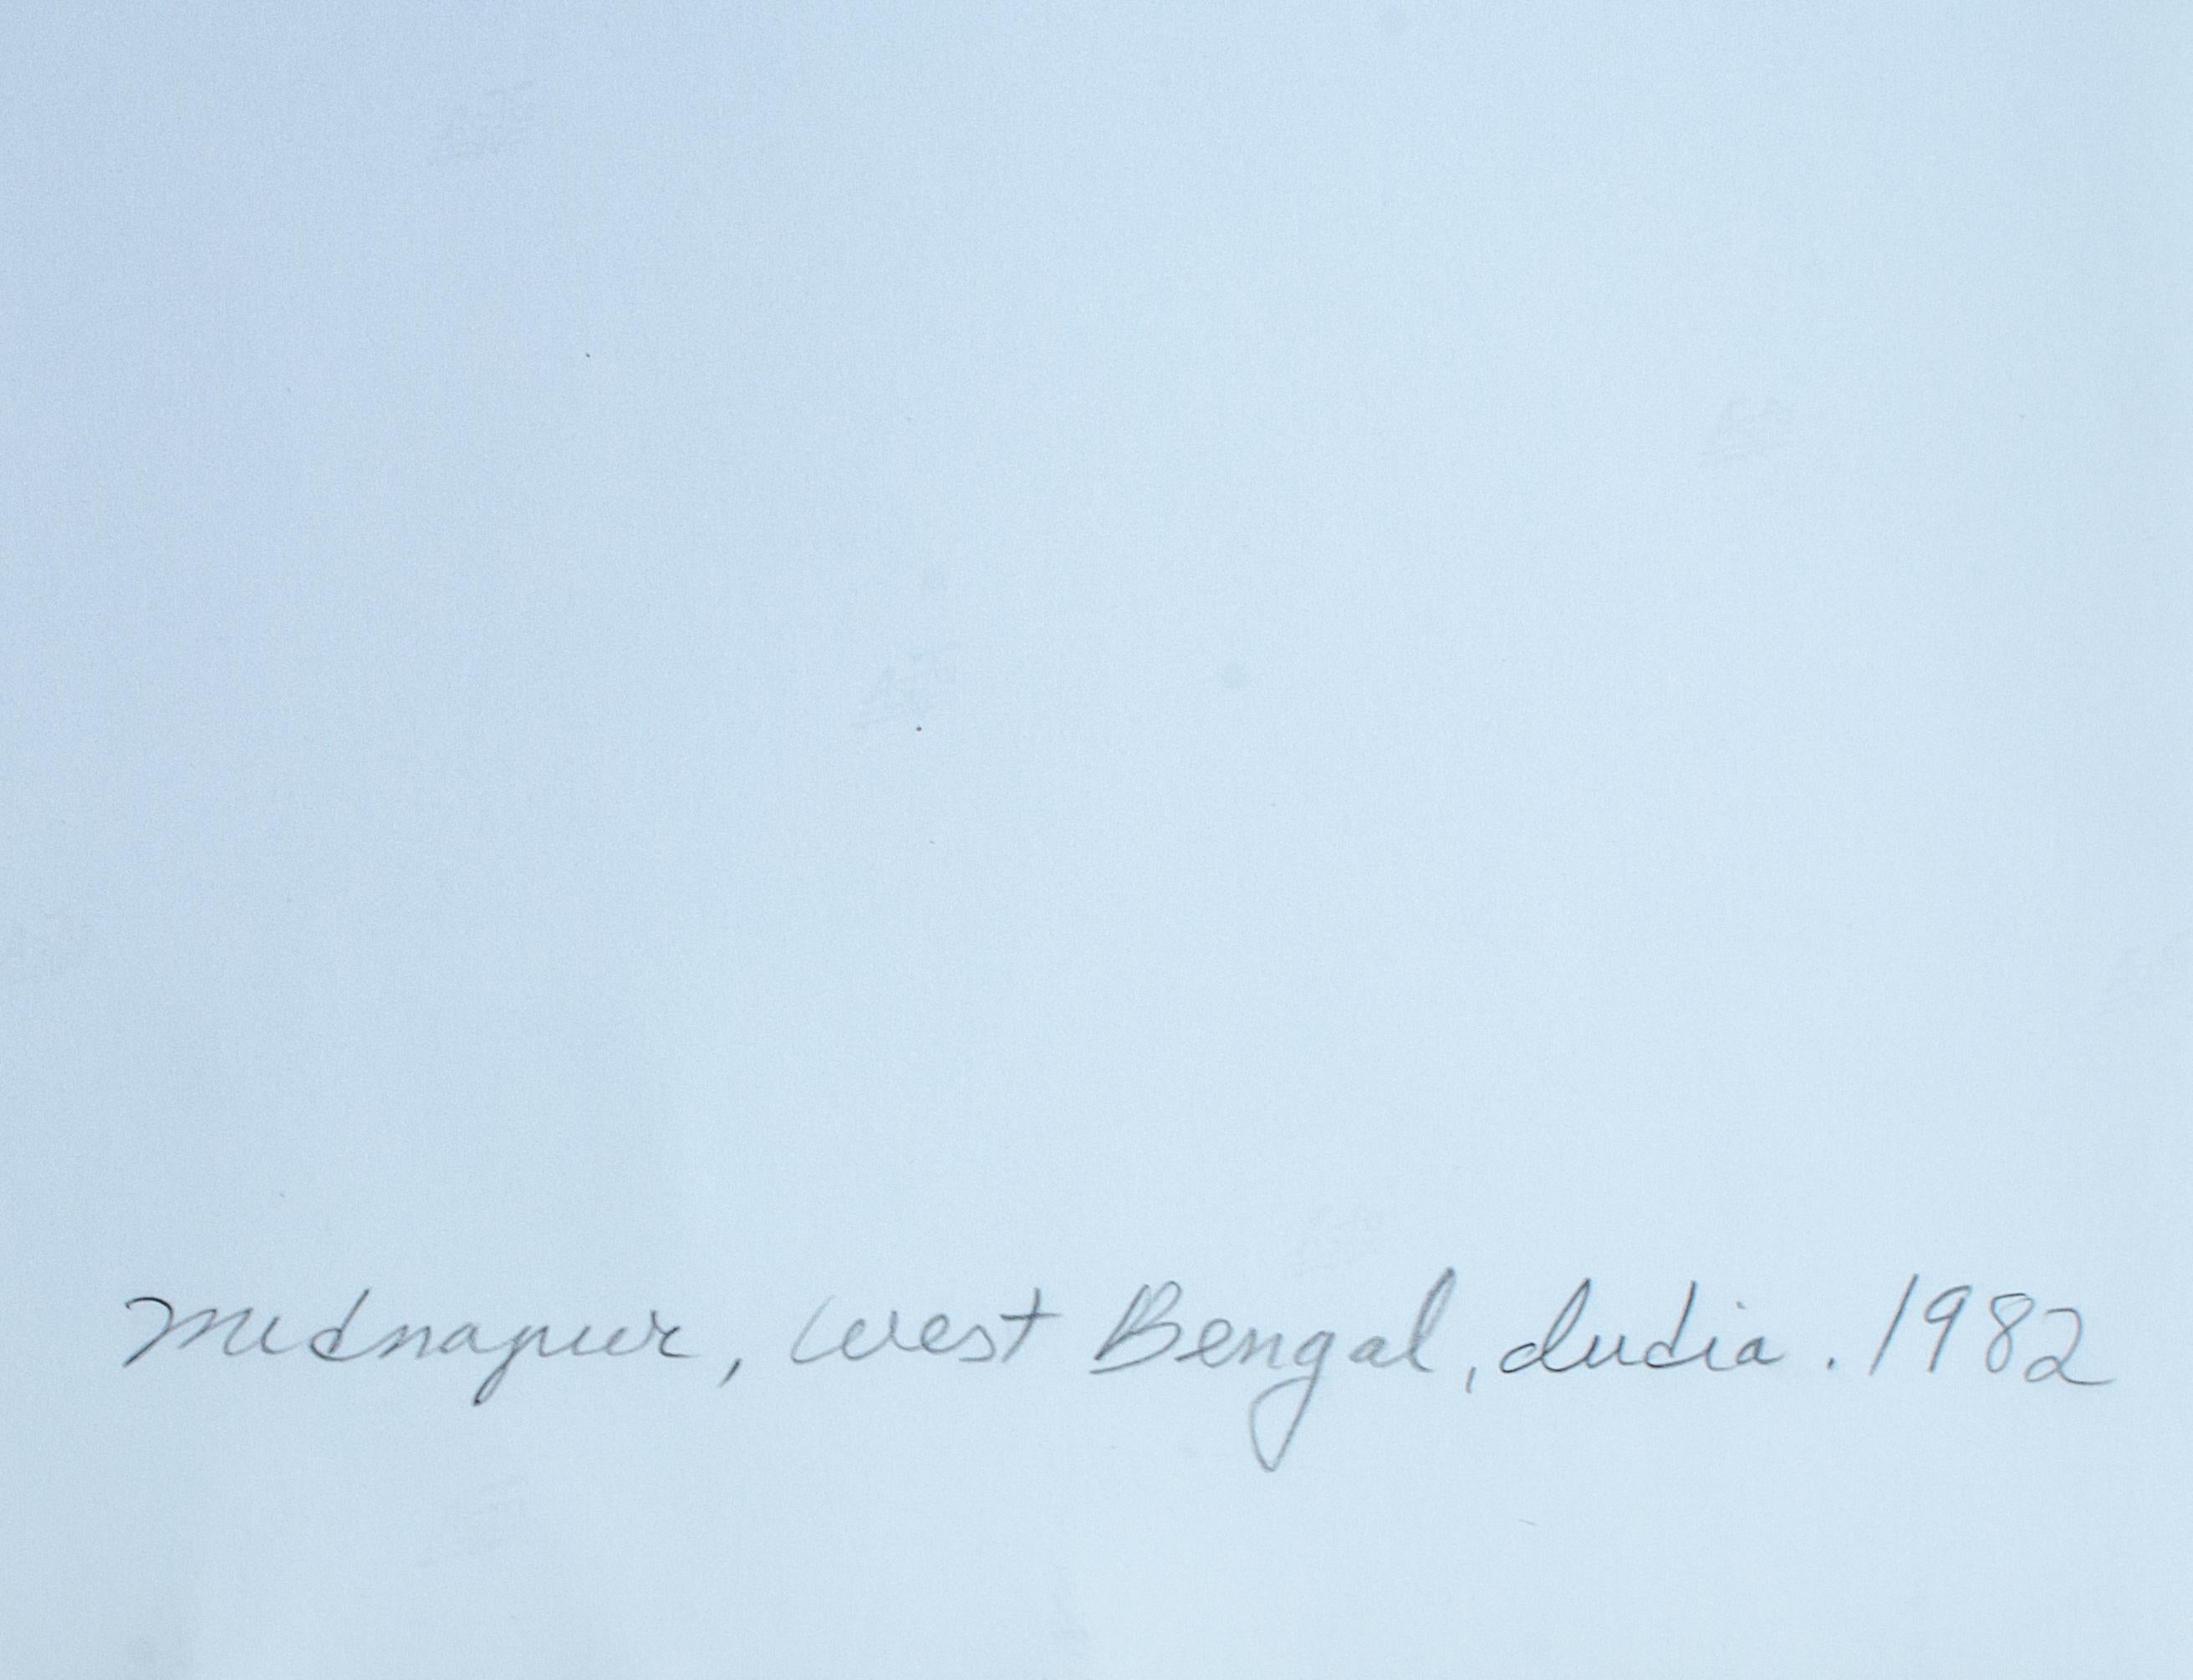 Midnapur, West Bengal, India. 1982